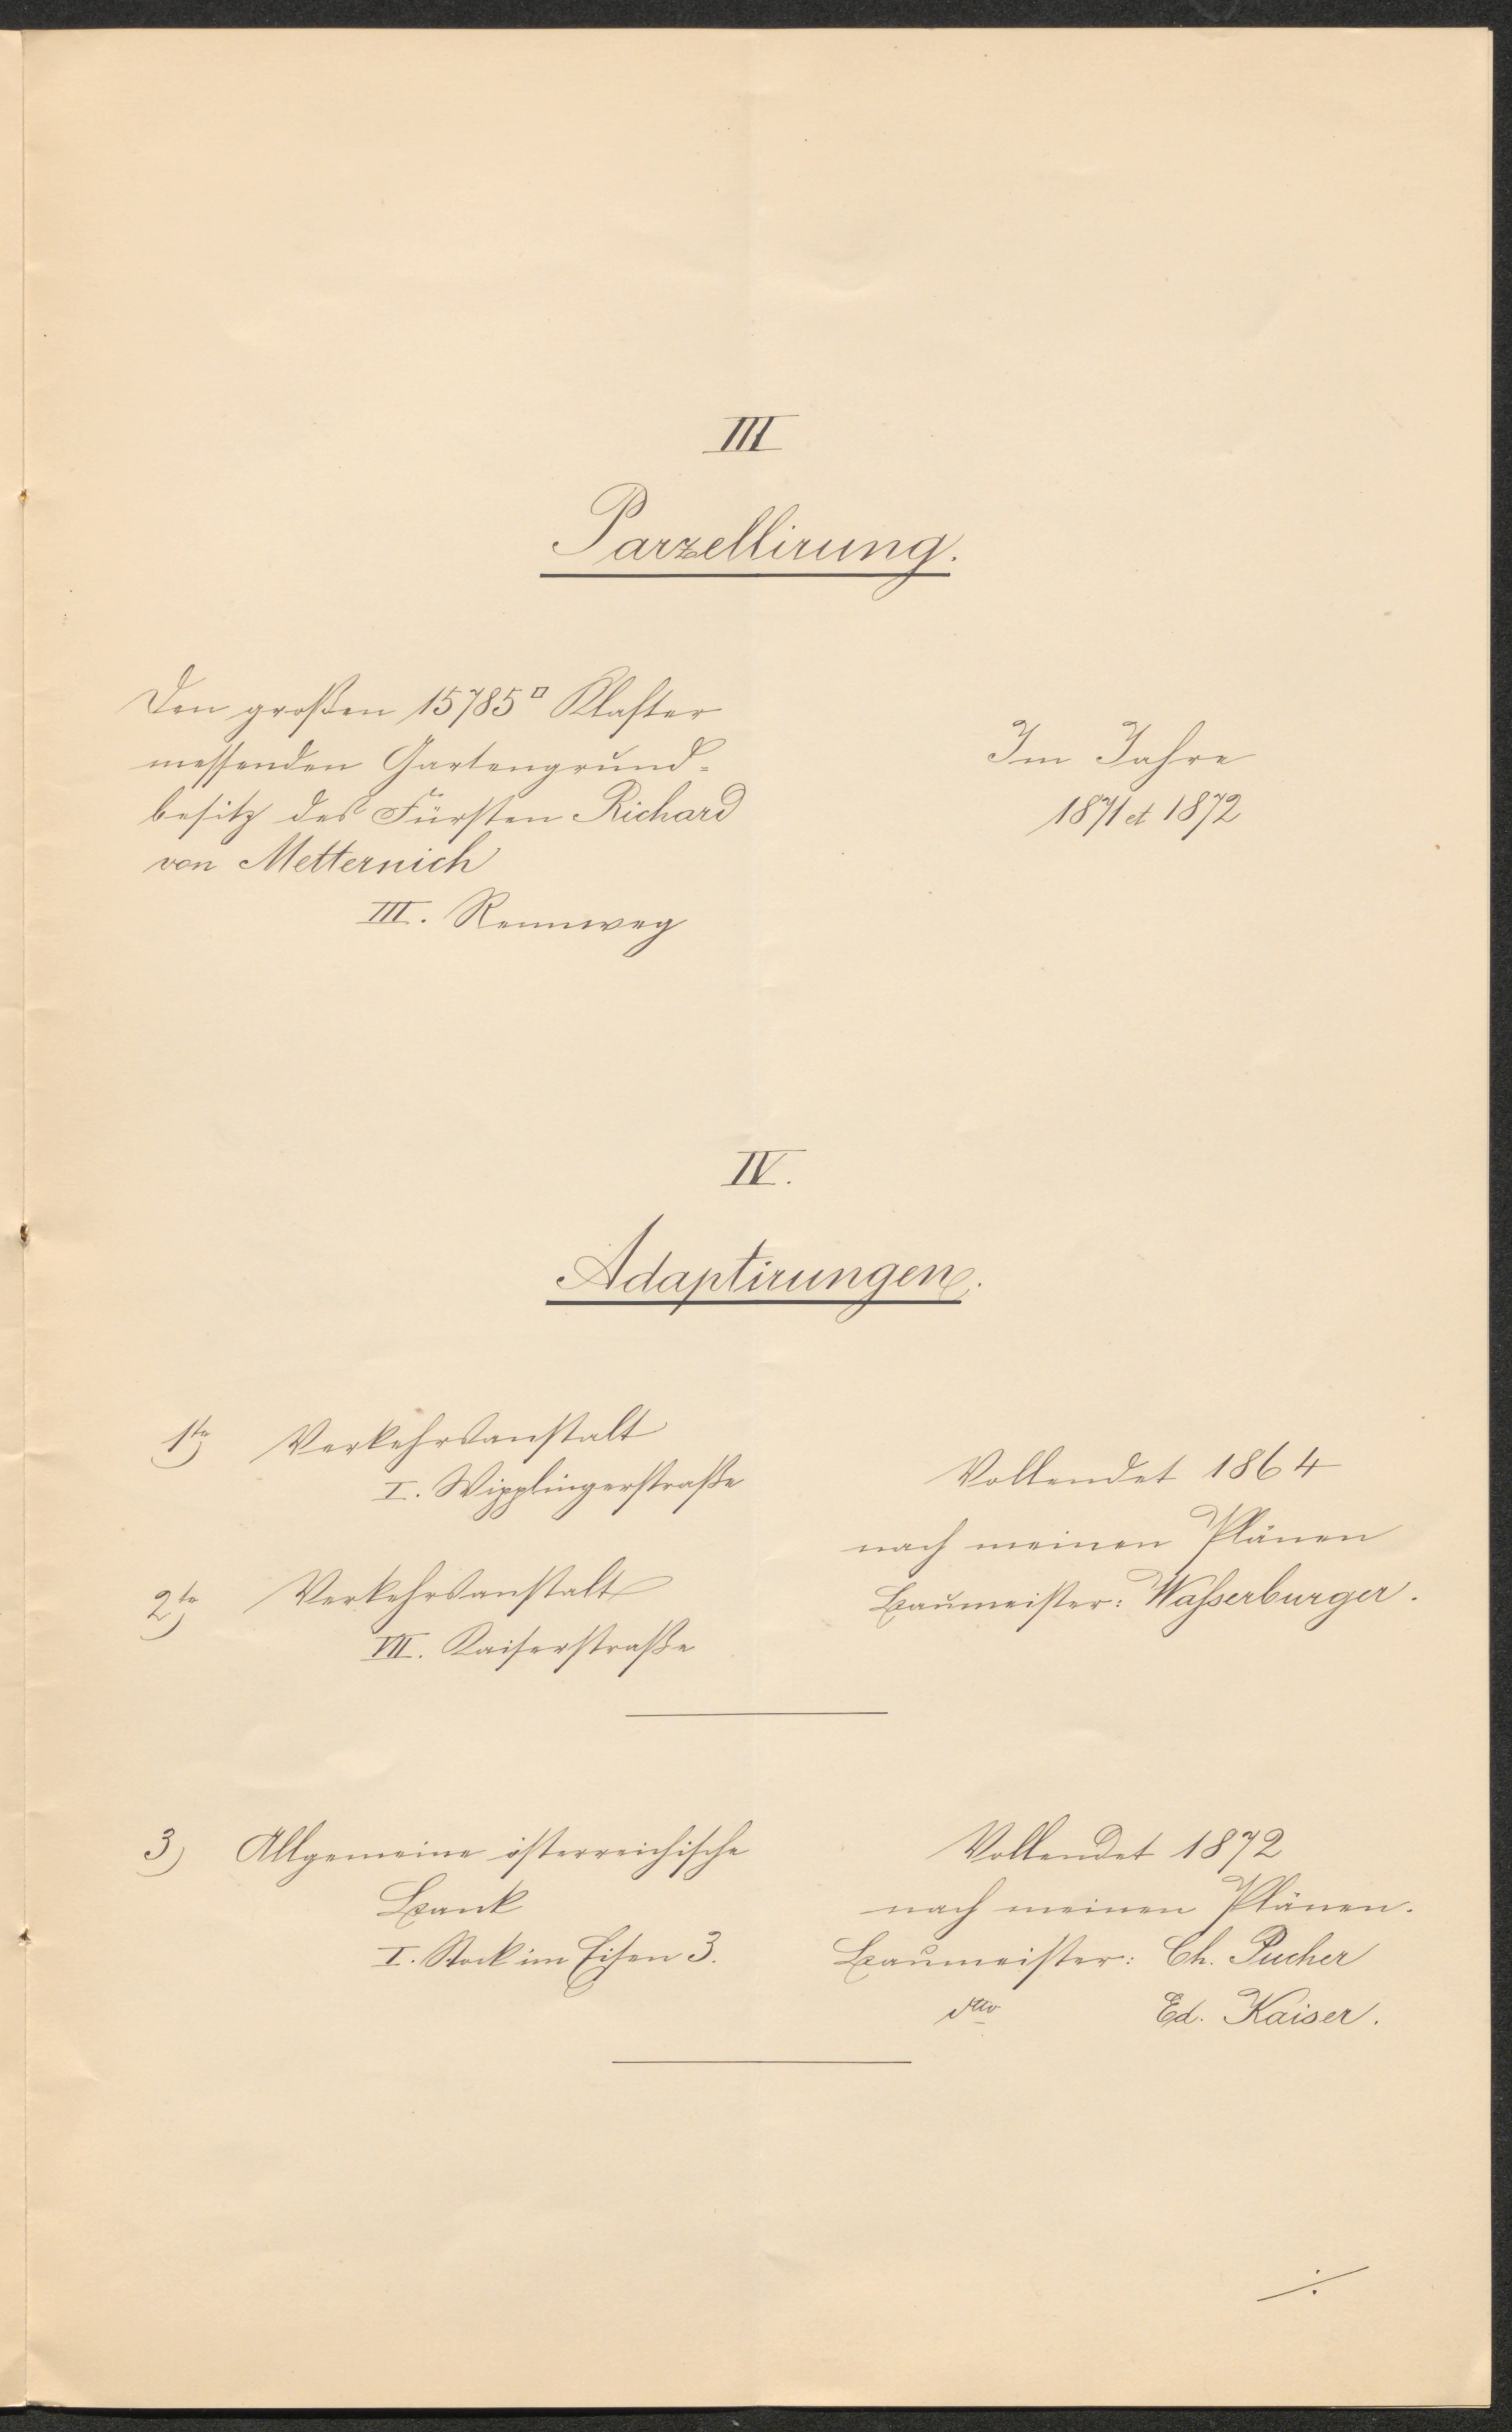 III
Parzellirung.
Den großen 15785□ Klafter
messenden Gartengrund-
besitz des Fürsten Richard
von Metternich
III. Rennweg
Im Jahre
1871 et 1872
IV.
Adaptirungen.
1te) Verkehrsanstalt
I. Wipplingerstraße
2te) Verkehrsanstalt
VII. Kaiserstraße
Vollendet 1864
nach meinen Plänen
Baumeister: Wasserburger.
3) Allgemeine österreichische
Bank
I. Stock im Eisen 3.
Vollendet 1872
nach meinen Plänen.
Baumeister: Ch. Pucher
dtto Ed. Kaiser.
./.